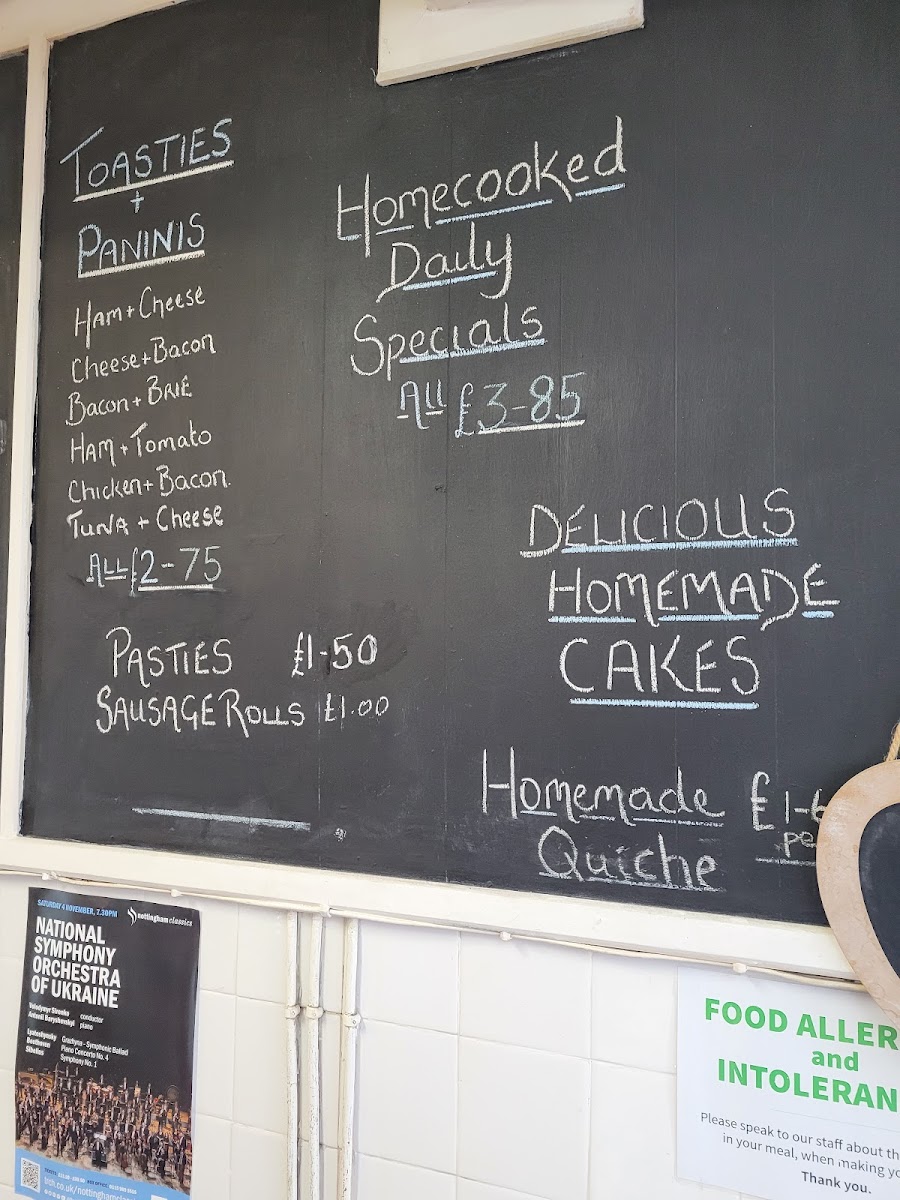 TOASTIES
+
PANINIS
HAM + Cheese
Cheese + Bacon
Bacon + BRIE
HAM + Tomato
Chicken + Bacon
TUNA + Cheese
ALL £2-75
PASTIES £1-50
SAUSAGE ROLLS £1.00
Homecooked
Daily
Specials
All £3-85
DELICIOUS
HOMEMADE
CAKES
Homemade £1-6
Quiche pe
SATURDAY 4 NOVEMBER, 7.30PM
nottingham classics
NATIONAL
SYMPHONY
ORCHESTRA
OF UKRAINE
Volodymyr Sirenko conductor
Antonii Baryshevskyi piano
Lyatoshynsky Grazhyna - Symphonic Ballad
Beethoven Piano Concerto No. 4
Sibelius Symphony No. 1
FOOD ALLER
and
INTOLERAN
Please speak to our staff about th
in your meal, when making yo
Thank you.